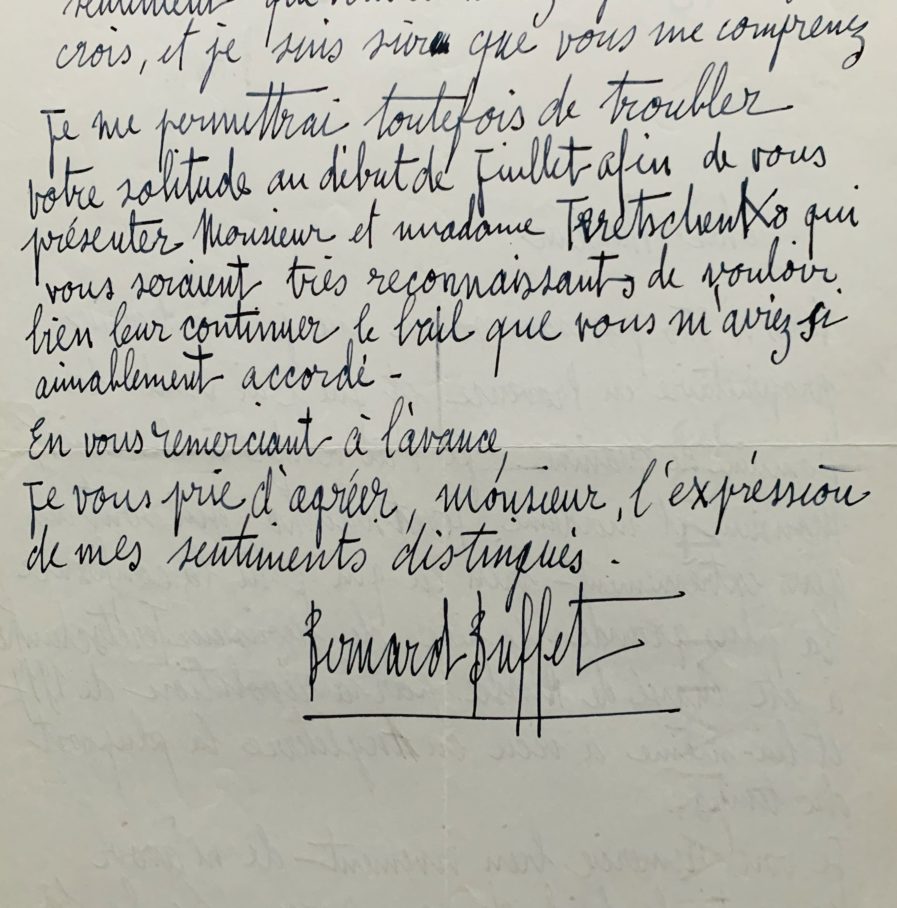 sentiment que vous
crois, et je suis sûr que vous me comprenez
Je me permettrai toutefois de troubler
votre solitude au début de Juillet afin de vous
présenter Monsieur et madame Teretschenko qui
vous seraient très reconnaissants de vouloir
bien leur continuer le bail que vous m'aviez si
aimablement accordé -
En vous remerciant à l'avance,
Je vous prie d'agréer, monsieur, l'expréssion
de mes sentiments distingués.
Bernard Buffet